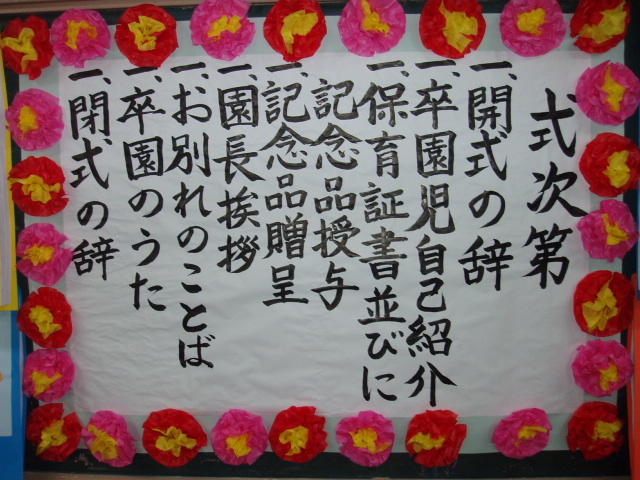 式次第
一、開式の辞
一、卒園児自己紹介
一、保育証書並びに
記念品授与
一、記念品贈呈
一、園長挨拶
一、お別れのことば
一、卒園のうた
一、閉式の辞